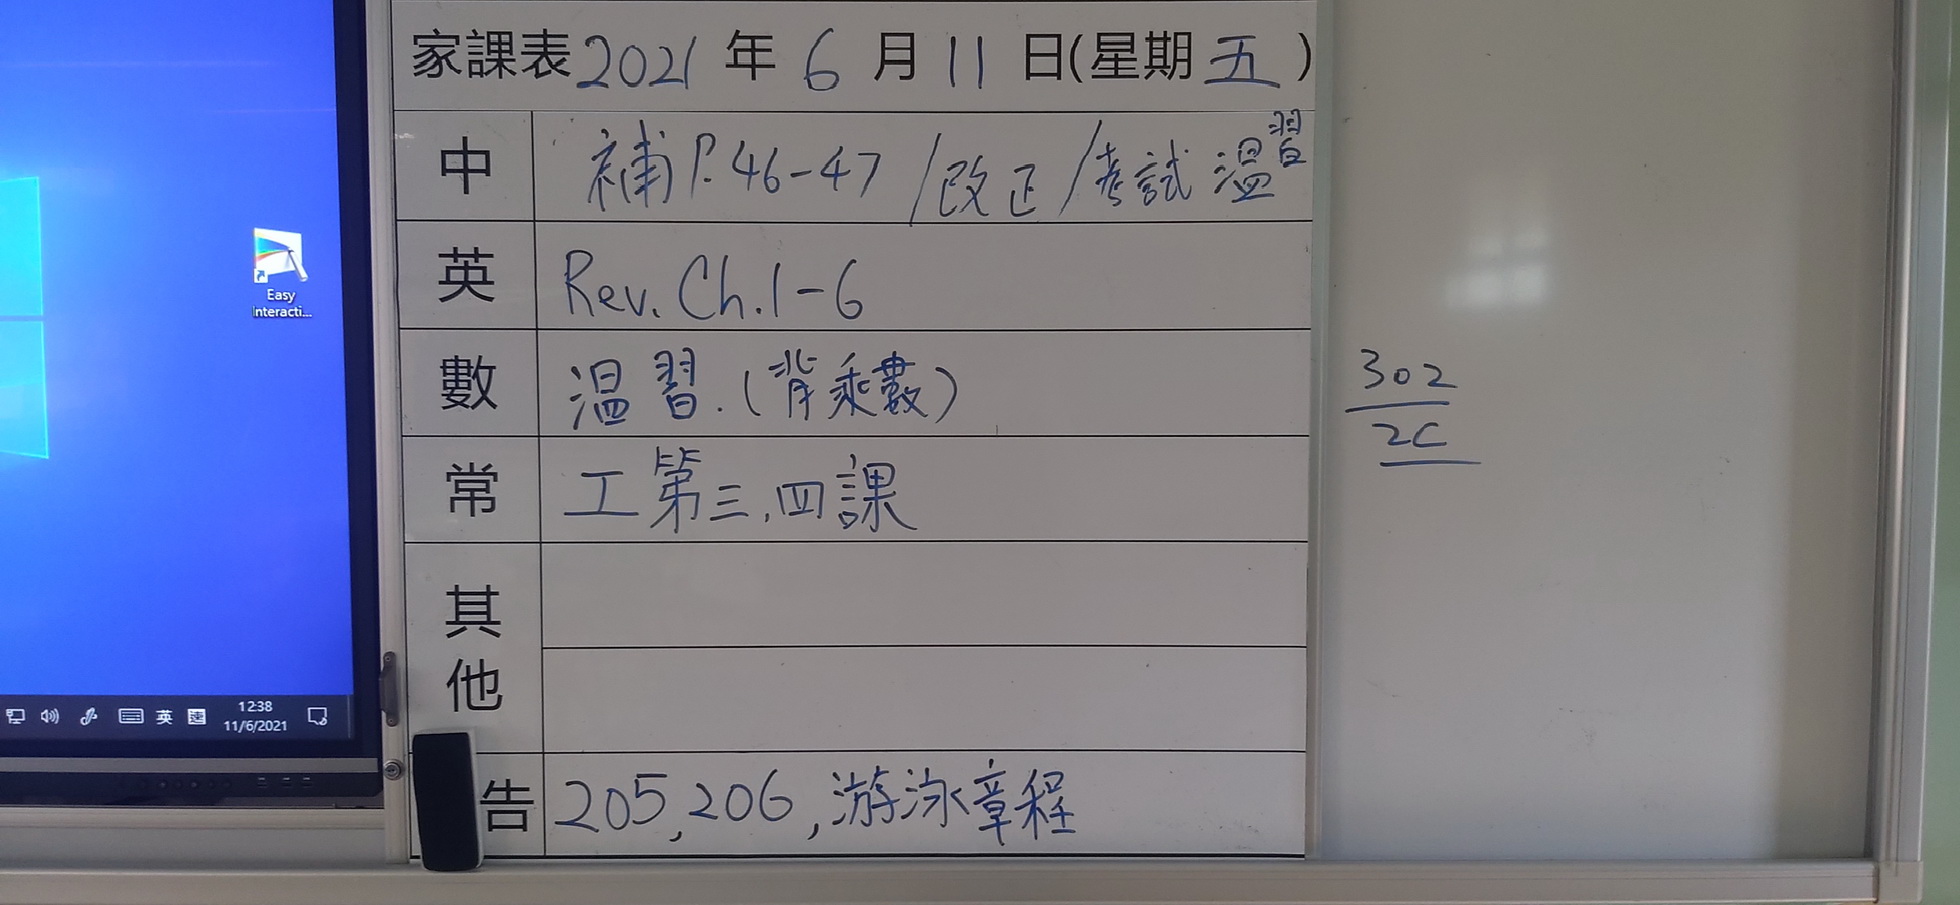 家課表 2021 年 6 月 11 日(星期 五 )
中 補 P.46-47 /改正 /考試 溫習
英 Rev. Ch.1-6
數 溫習.(背乘數)
常 工第三,四課
其他
告 205,206,游泳章程
302
2C
Easy
Interacti...
英 速 12:38
11/6/2021